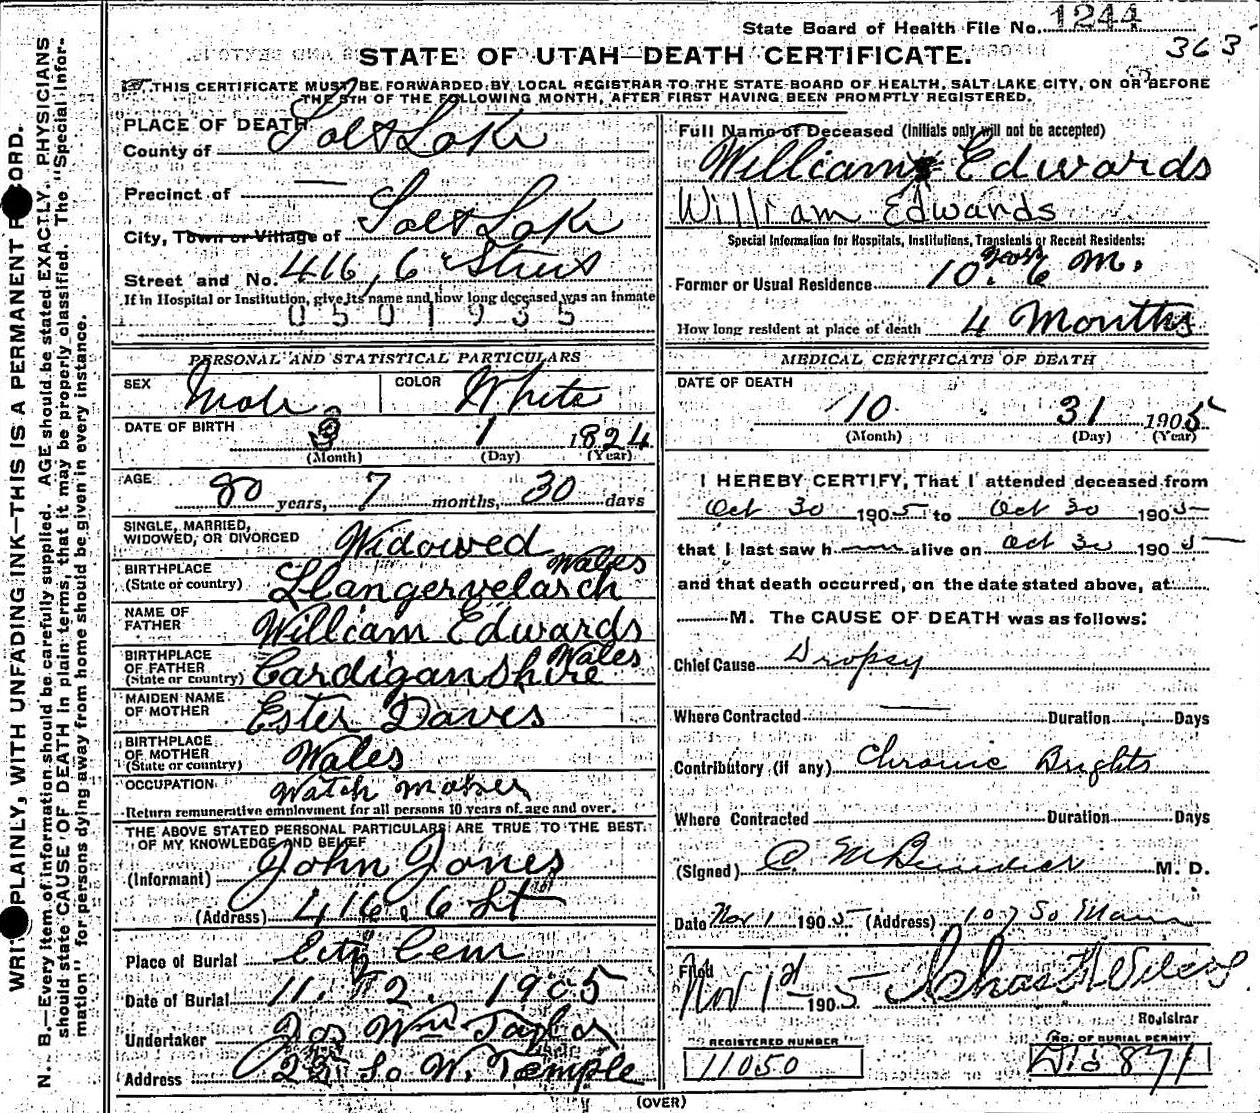 State Board of Health File No. 1244
363
STATE OF UTAH—DEATH CERTIFICATE.
THIS CERTIFICATE MUST BE FORWARDED BY LOCAL REGISTRAR TO THE STATE BOARD OF HEALTH, SALT LAKE CITY, ON OR BEFORE
THE 5TH OF THE FOLLOWING MONTH, AFTER FIRST HAVING BEEN PROMPTLY REGISTERED.
WRITE PLAINLY, WITH UNFADING INK—THIS IS A PERMANENT RECORD.
N. B.—Every item of information should be carefully supplied. AGE should be stated EXACTLY. PHYSICIANS
should state CAUSE OF DEATH in plain terms, that it may be properly classified. The "Special Infor-
mation" for persons dying away from home should be given in every instance.
PLACE OF DEATH
County of Salt Lake
Precinct of —
City, Town or Village of Salt Lake
Street and No. 416, 6 Street
If in Hospital or Institution, give its name and how long deceased was an inmate
0501935
PERSONAL AND STATISTICAL PARTICULARS
SEX Male COLOR White
DATE OF BIRTH 3 1 1824
(Month) (Day) (Year)
AGE 80 years, 7 months, 30 days
SINGLE, MARRIED,
WIDOWED, OR DIVORCED Widowed
BIRTHPLACE Wales
(State or country) Llangervelarch
NAME OF
FATHER William Edwards
BIRTHPLACE
OF FATHER Wales
(State or country) Cardiganshire
MAIDEN NAME
OF MOTHER Ester Daves
BIRTHPLACE
OF MOTHER
(State or country) Wales
OCCUPATION Watch maker
Return remunerative employment for all persons 10 years of age and over.
THE ABOVE STATED PERSONAL PARTICULARS ARE TRUE TO THE BEST
OF MY KNOWLEDGE AND BELIEF
(Informant) John Jones
(Address) 416. 6 St
Place of Burial City Cem
Date of Burial 11. 2. 1905
Undertaker Jos Wm Taylor
Address So W. Temple
Full Name of Deceased (Initials only will not be accepted)
William Edwards
William Edwards
Special Information for Hospitals, Institutions, Transients or Recent Residents:
Former or Usual Residence 10 6 M.
How long resident at place of death 4 Months
MEDICAL CERTIFICATE OF DEATH
DATE OF DEATH
10 31 1905
(Month) (Day) (Year)
I HEREBY CERTIFY, That I attended deceased from
Oct 30 1905 to Oct 30 1905
that I last saw h alive on Oct 30 1905
and that death occurred, on the date stated above, at
M. The CAUSE OF DEATH was as follows:
Chief Cause Dropsy
Where Contracted — Duration Days
Contributory (if any) Chronic Brights
Where Contracted Duration Days
(Signed) C. M. Benedict M. D.
Date Nov 1 1905 (Address) 107 So Main
Filed
Nov 1st 1905 Chas H Wilcox
Registrar
REGISTERED NUMBER
11050
NO. OF BURIAL PERMIT
(OVER)